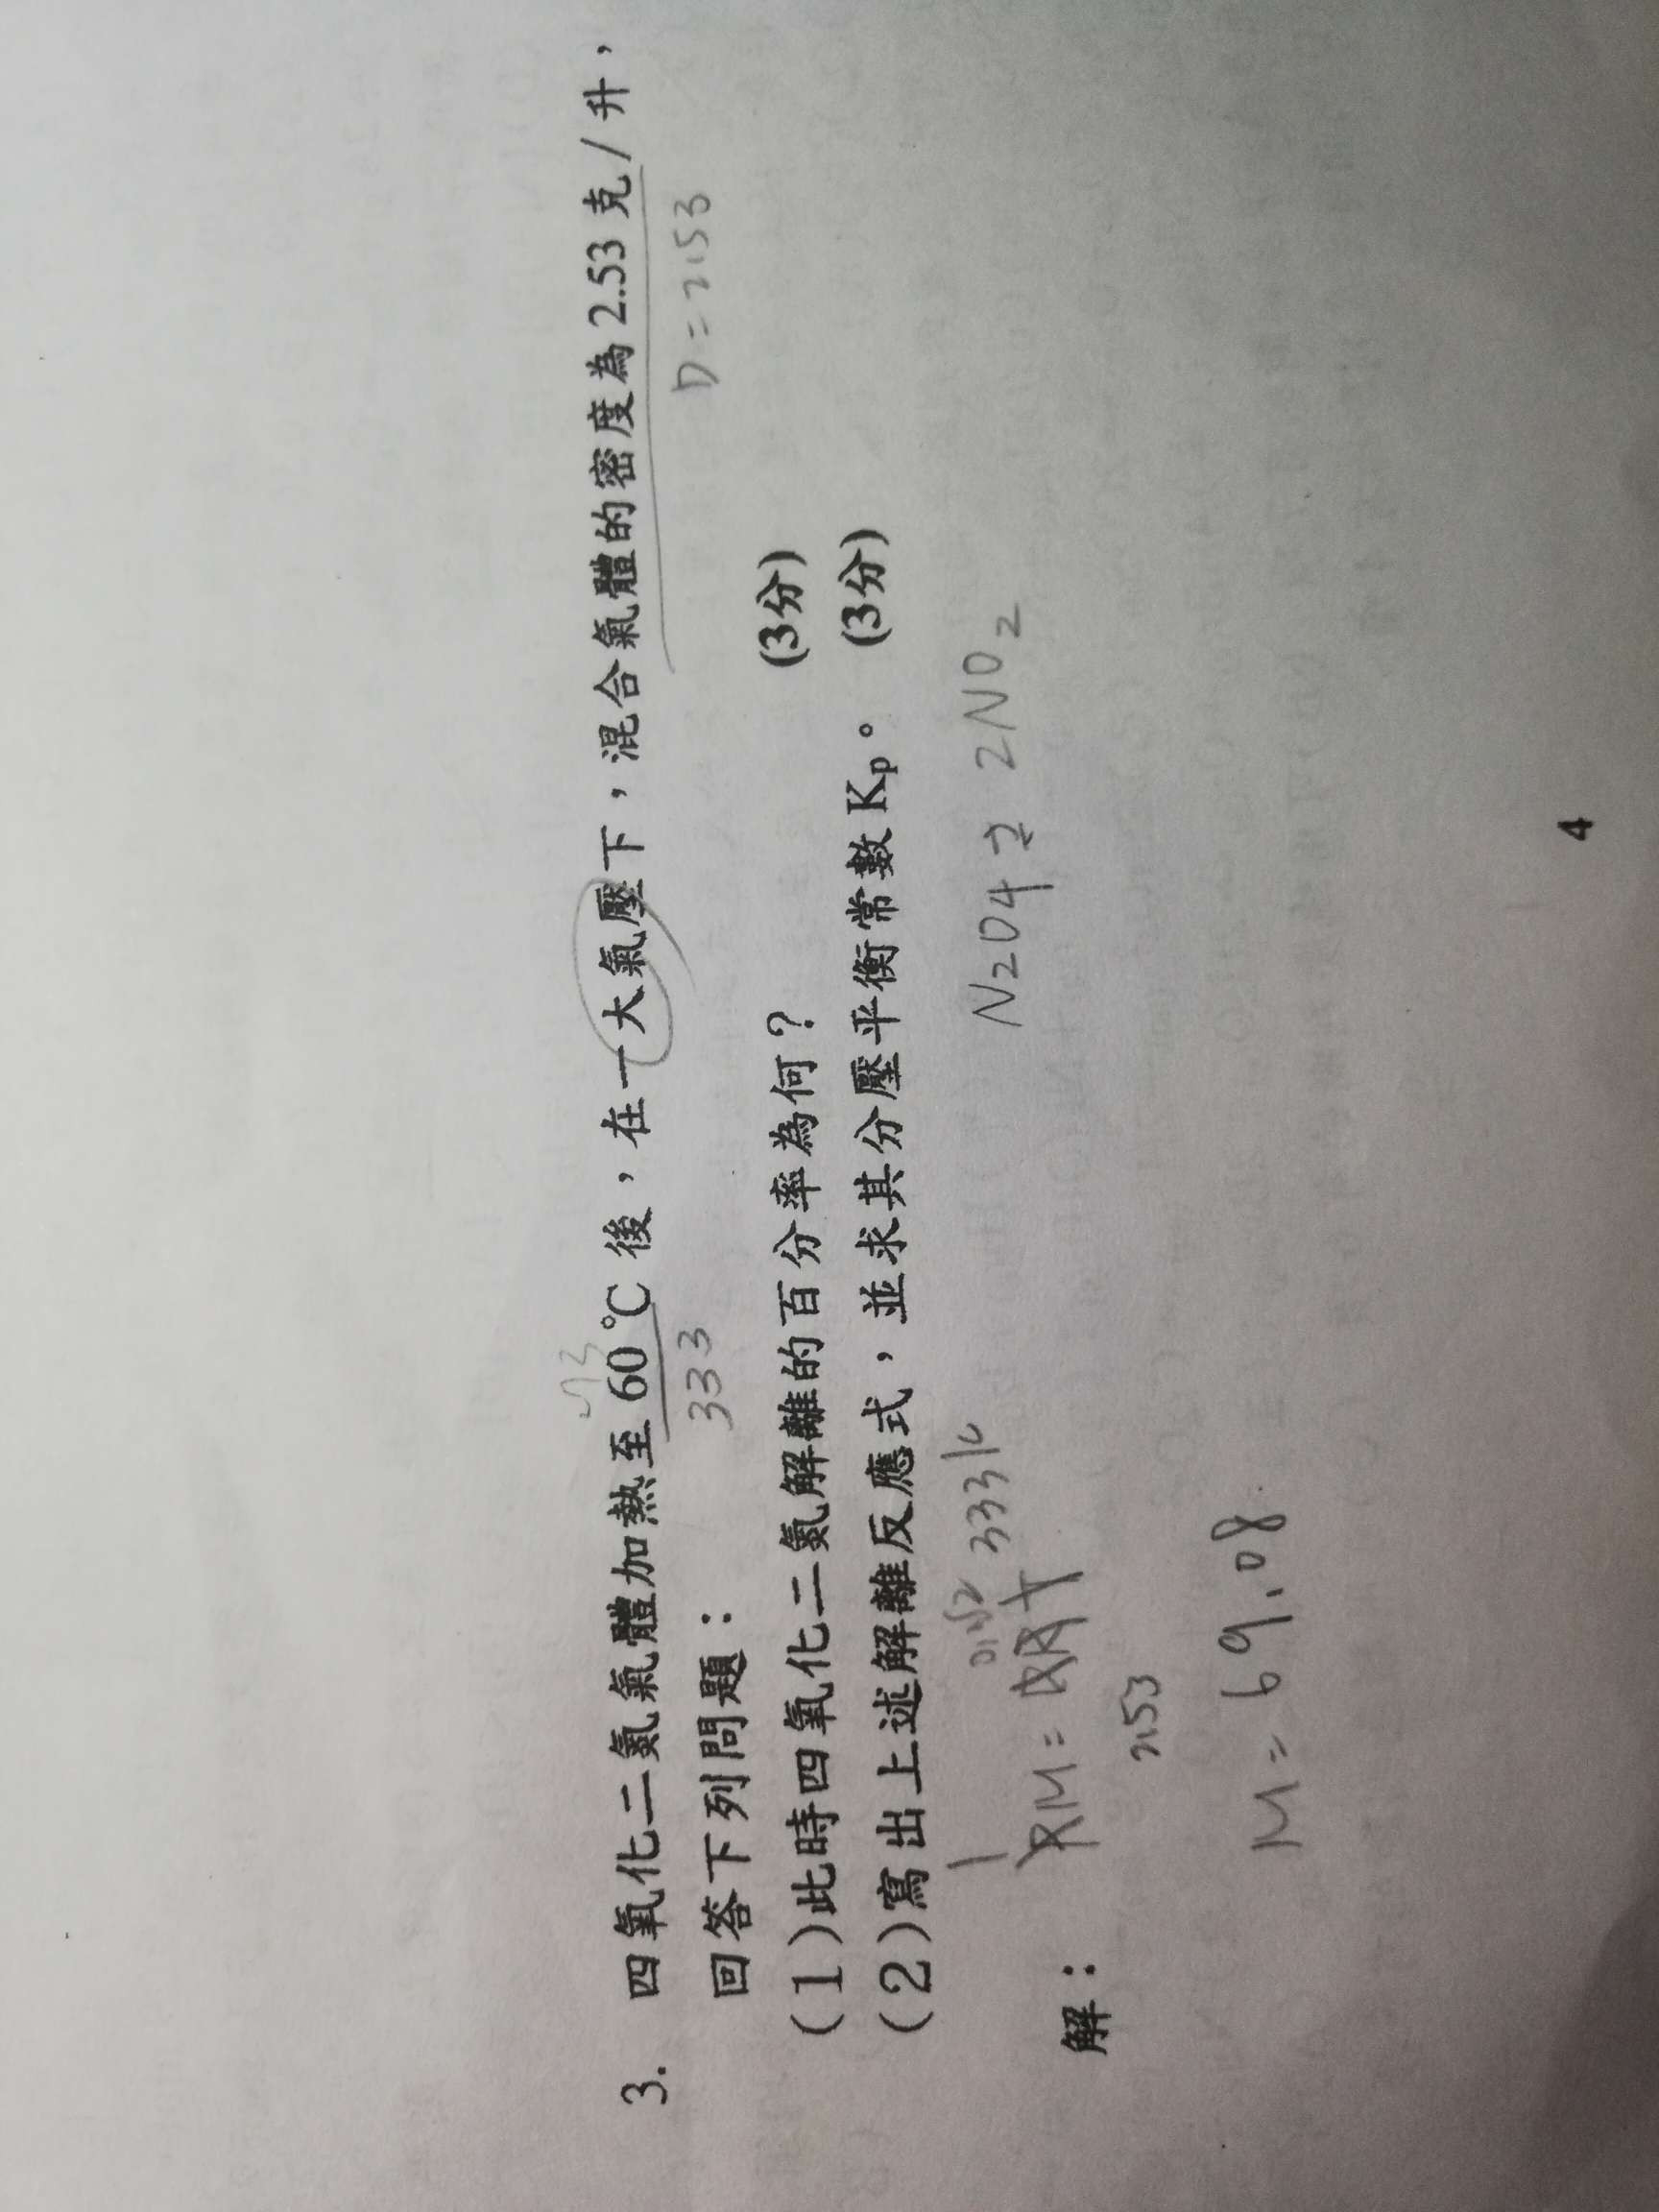 273
3. 四氧化二氮氣體加熱至60℃後，在一大氣壓下，混合氣體的密度為2.53克/升，
333 D=2.53
回答下列問題：
(1)此時四氧化二氮解離的百分率為何？ (3分)
(2)寫出上述解離反應式，並求其分壓平衡常數Kp。 (3分)
1 0.082 333k
解： PM=DRT N2O4⇌2NO2
2.53
M=69.08
4